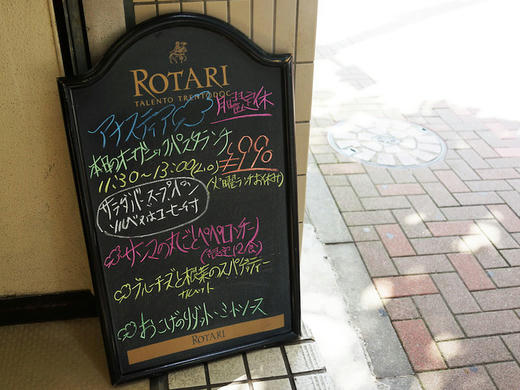 ROTARI
TALENTO TRENTODOC
アナスティア
月曜定休
本日のオーガニックパスタランチ
11:30~13:00(L.o)
¥990
(火曜ランチお休み)
サラダバー・スープ・パン
ソルベ又はコーヒー付
サンマの丸ごとペペロンチーノ
(限定12食)
ブルーチーズと根菜のスパゲッティー
おこげのリゾット・ミートソース
ROTARI